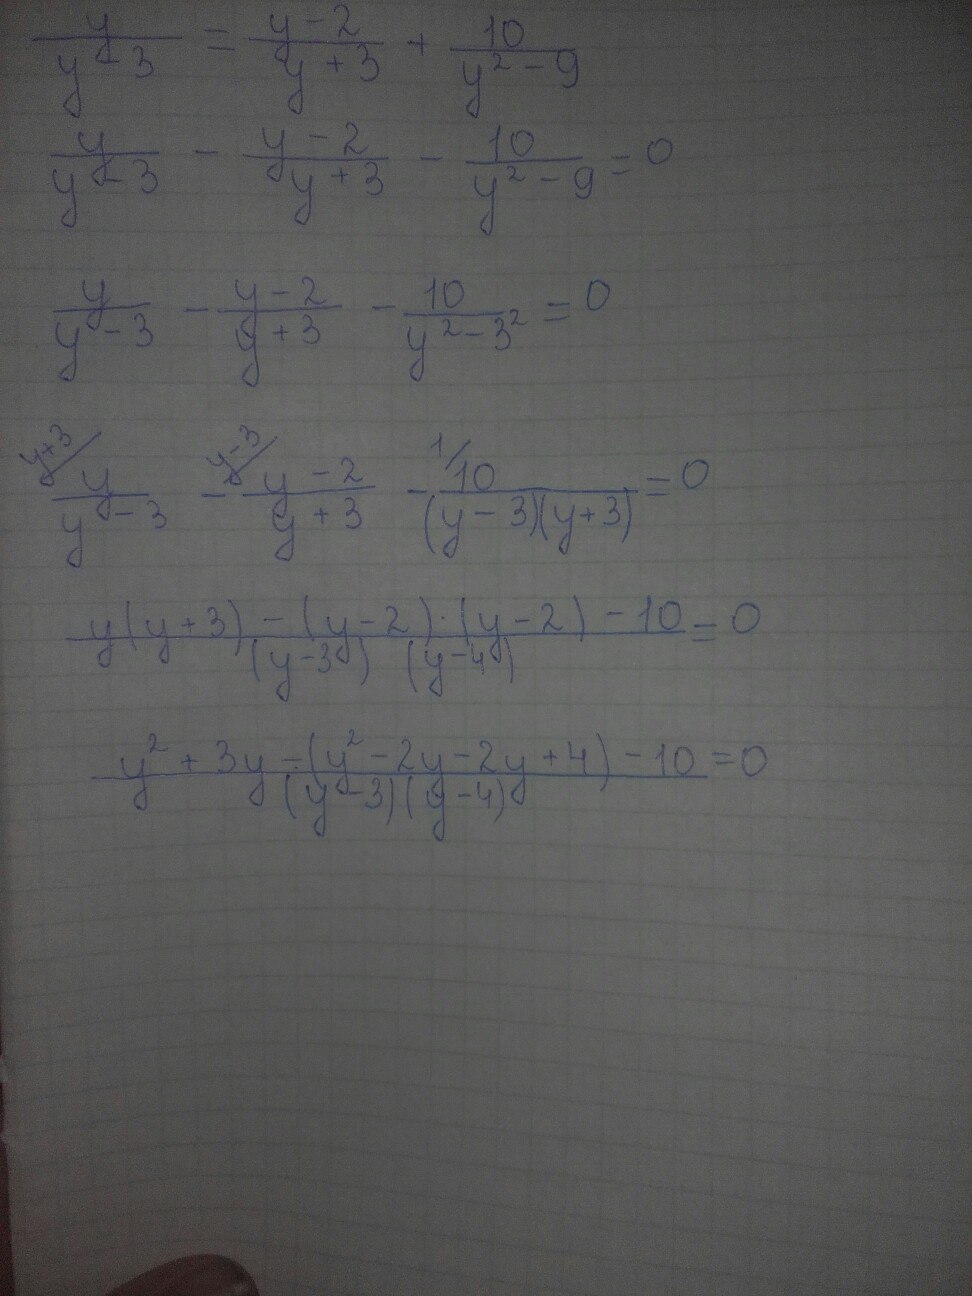 y/(y-3) = (y-2)/(y+3) + 10/(y²-9)
y/(y-3) - (y-2)/(y+3) - 10/(y²-9) = 0
y/(y-3) - (y-2)/(y+3) - 10/(y²-3²) = 0
y+3/ y/(y-3) - y-3/ (y-2)/(y+3) - 1/ 10/((y-3)(y+3)) = 0
(y(y+3) - (y-2)·(y-2) - 10)/((y-3)(y-4)) = 0
(y²+3y-(y²-2y-2y+4)-10)/((y-3)(y-4)) = 0